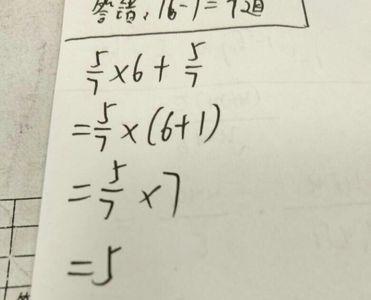 答错:16-1=
5/7×6+5/7
=5/7×(6+1)
=5/7×7
=5